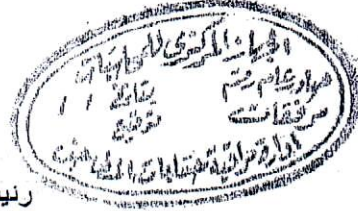 الجهاز المركزى للمحاسبات
صادر عام رقم
بتاريخ / /
مرفقات
توقيع
إدارة مراقبة حسابات
رئيـ